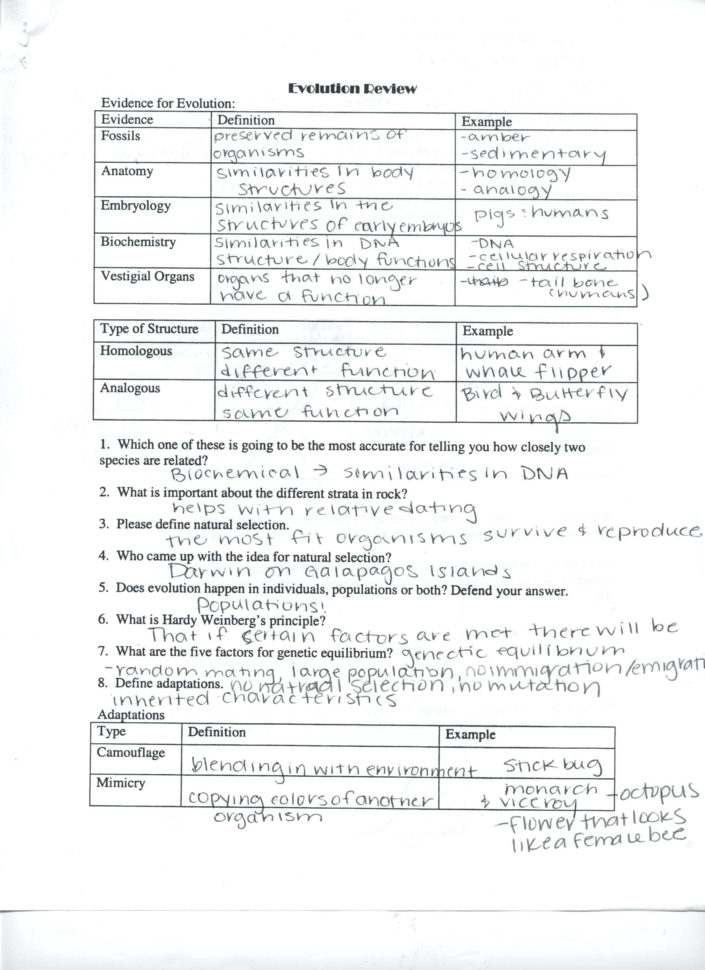 Evolution Review
Evidence for Evolution:
Evidence Definition Example
Fossils preserved remains of organisms -amber -sedimentary
Anatomy similarities in body structures -homology - analogy
Embryology similarities in the structures of early embryos pigs : humans
Biochemistry similarities in DNA structure / body functions -DNA -cellular respiration -cell structure
Vestigial Organs organs that no longer have a function -tail bone (humans)
Type of Structure Definition Example
Homologous same structure different function human arm & whale flipper
Analogous different structure same function Bird & Butterfly wings
1. Which one of these is going to be the most accurate for telling you how closely two
species are related?
Biochemical → similarities in DNA
2. What is important about the different strata in rock?
helps with relative dating
3. Please define natural selection.
the most fit organisms survive & reproduce
4. Who came up with the idea for natural selection?
Darwin on Galapagos Islands
5. Does evolution happen in individuals, populations or both? Defend your answer.
Populations!
6. What is Hardy Weinberg's principle?
That if certain factors are met there will be
7. What are the five factors for genetic equilibrium? genectic equilibrium
-random mating, large population, no immigration/emigrati
8. Define adaptations. no natradl selection, no mutation
inherited characteristics
Adaptations
Type Definition Example
Camouflage blending in with environment stick bug
Mimicry copying colors of another organism monarch & viceroy -octopus
-flower that looks
like a female bee